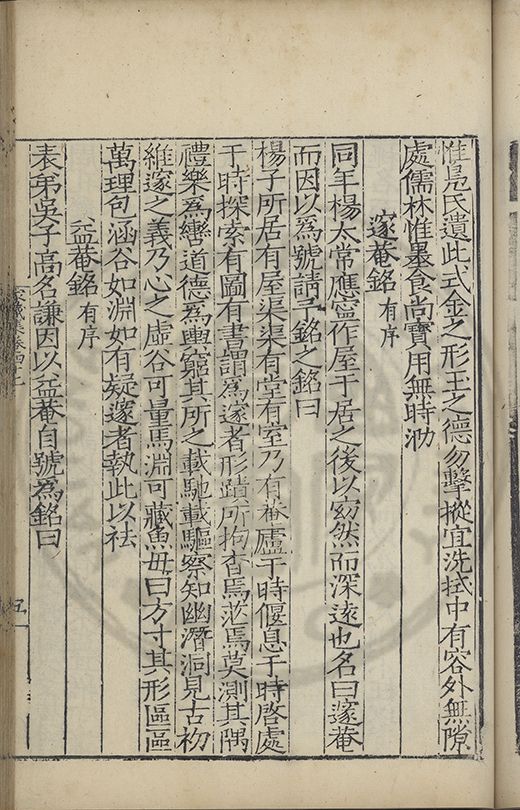 惟鳧氏遺此式金之形玉之德勿擊摐宜洗拭中有容外無隙
處儒林惟墨食尚寶用無時泐
邃菴銘有序
同年楊太常應寧作屋于居之後以窈然而深遠也名曰邃菴
而因以為號請予銘之銘曰
楊子所居有屋渠渠有堂有室乃有菴廬于時偃息于時啓處
于時探索有圖有書謂為邃者形蹟所拘杳焉茫焉莫測其隅
禮樂為轡道德為輿窮其所之載馳載驅察知幽潛洞見古初
維邃之義乃心之虛谷可量馬淵可藏魚毋曰方寸其形區區
萬理包涵谷如淵如有疑邃者執此以祛
益菴銘有序
表弟吳子高名謙因以益菴自號為銘曰
家藏集卷四十七
五